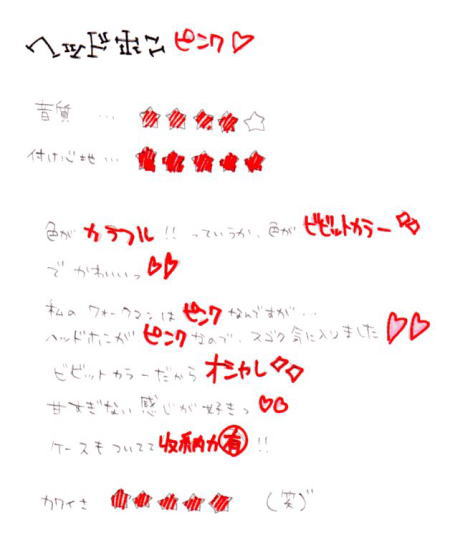 ヘッドホン ピンク♡
音質 … ★★★★☆
付け心地 … ★★★★★
色が カラフル!! っていうか、色が ビビットカラー
で かわいいっ♡♡
私の ウォークマンは ピンク なんですが…
ヘッドホンが ピンク なので、スゴク気に入りました♡♡
ビビットカラーだから オシャレ
甘すぎない 感じが 好きっ♡♡
ケースもついてて 収納力有!!
カワイさ ★★★★★ (笑)